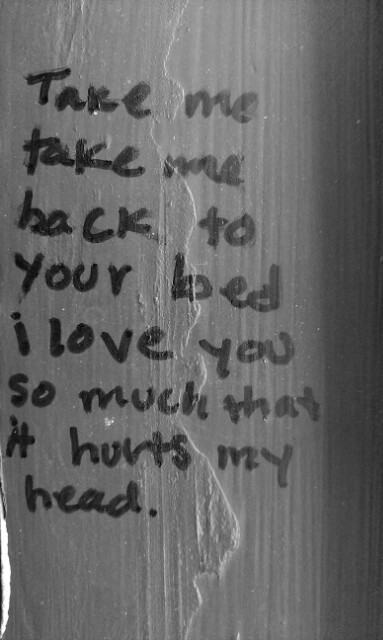 Take me
take me
back to
your bed
i love you
so much that
it hurts my
head.